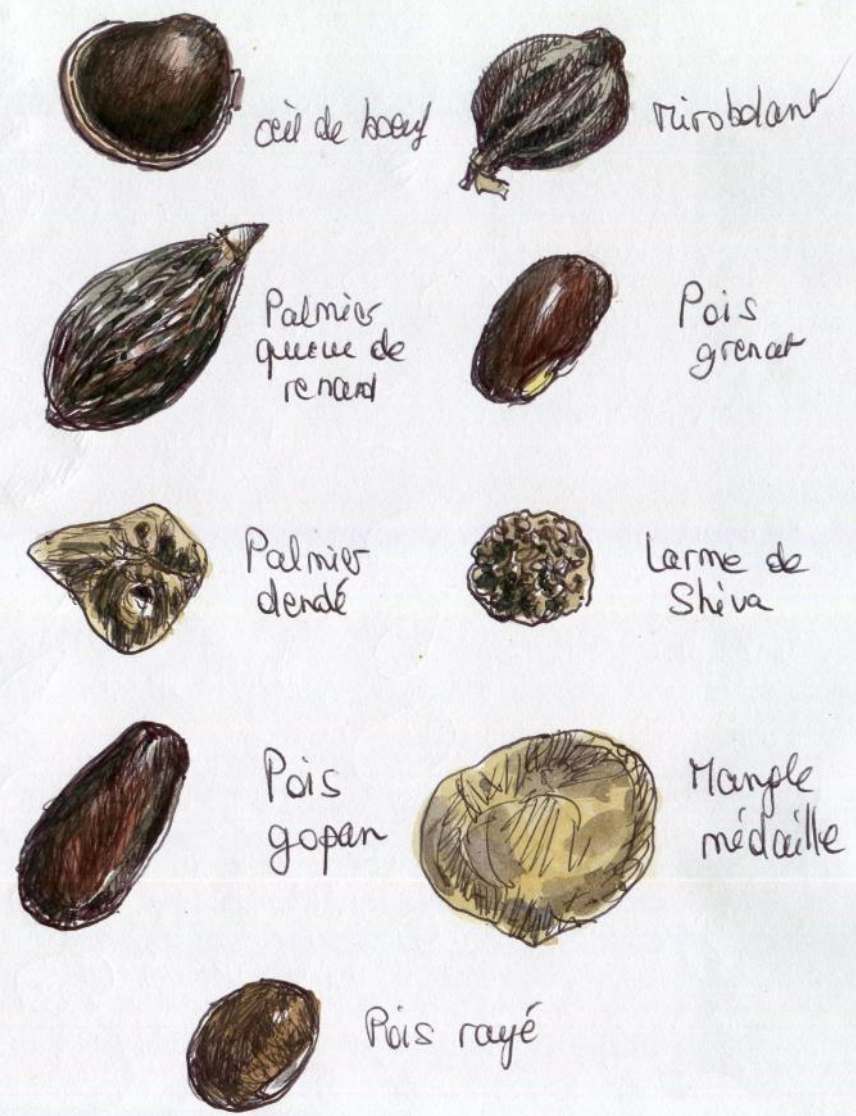 œil de bœuf
mirobolant
Palmier
queue de
renard
Pois
grenat
Palmier
dendé
Larme de
Shiva
Pois
gopan
Mangle
médaille
Pois rayé